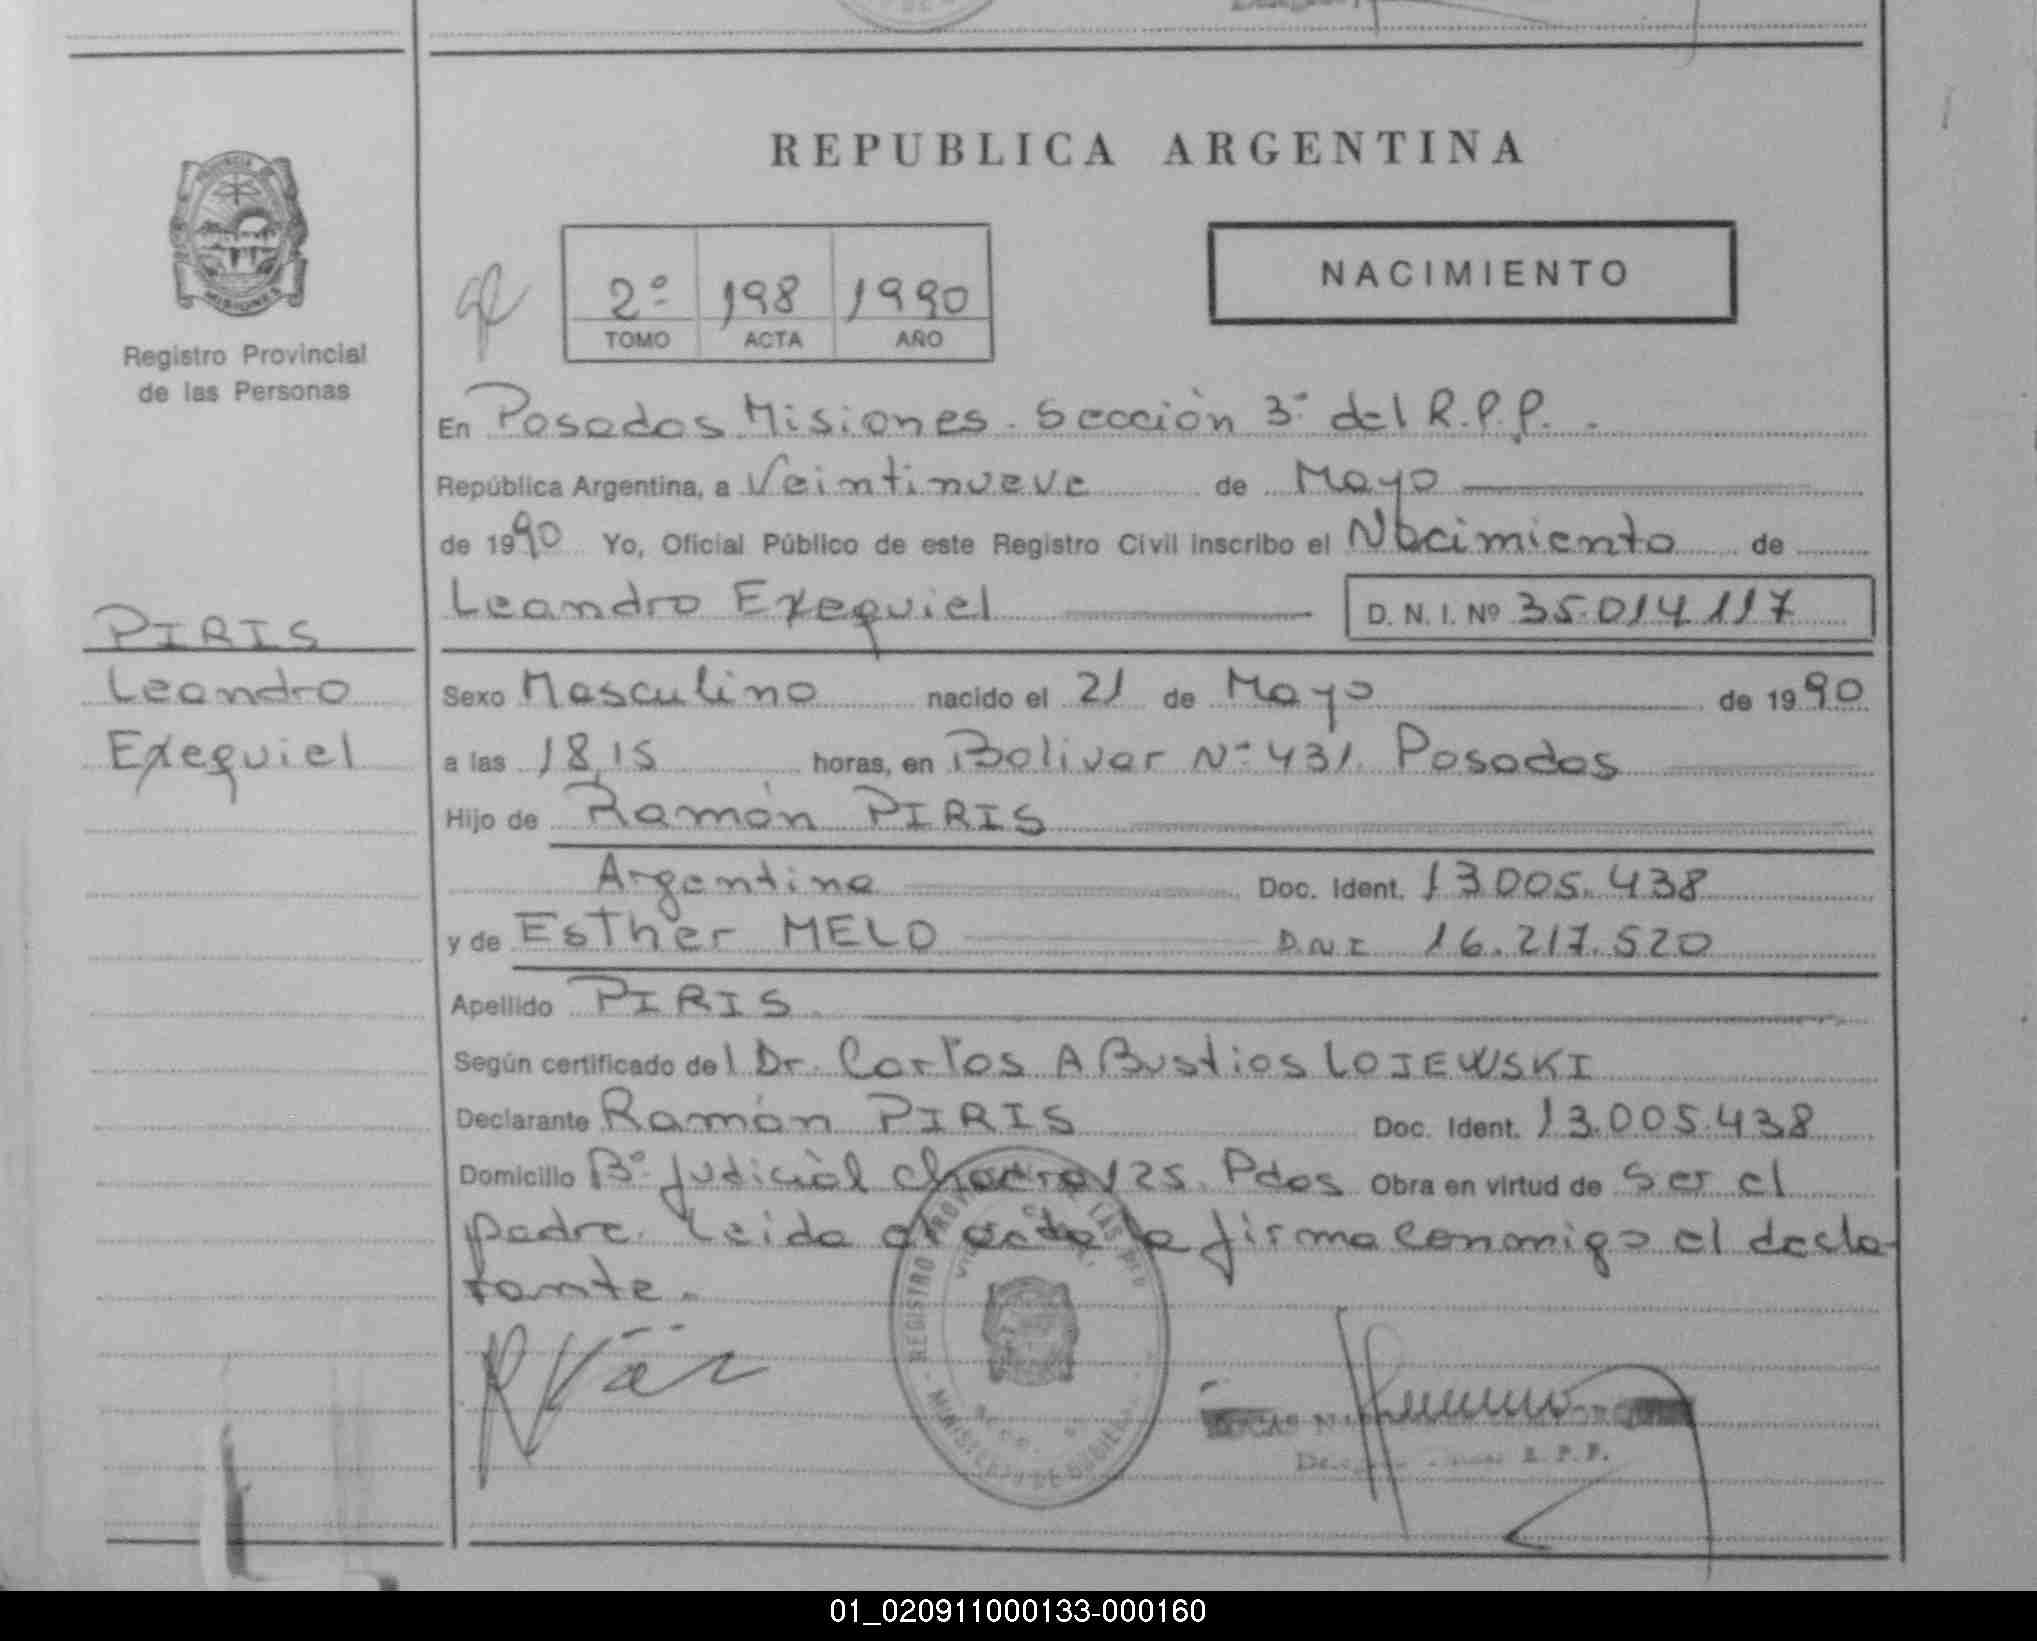 REPUBLICA ARGENTINA
NACIMIENTO
2º 198 1990
TOMO ACTA AÑO
Registro Provincial
de las Personas
En Posadas Misiones. Sección 3ª del R.P.P.
República Argentina, a Veintinueve de Mayo
de 1990 Yo, Oficial Público de este Registro Civil inscribo el Nacimiento de
Leandro Exequiel D. N. I. Nº 35.014.117
PIRIS
Leandro
Exequiel
Sexo Masculino nacido el 21 de Mayo de 1990
a las 18,15 horas, en Bolivar Nº 431. Posadas
Hijo de Ramón PIRIS
Argentino Doc. Ident. 13.005.438
y de Esther MELO D.N.I 16.217.520
Apellido PIRIS
Según certificado del Dr. Carlos A Bustios LOJEWSKI
Declarante Ramón PIRIS Doc. Ident. 13.005.438
Domicilio Bº Judicial Chacra 125. Pdas Obra en virtud de Ser el
padre. Leida el acta la firma conmigo el decla-
rante.
REGISTRO LAS
MINISTERIO DE GOBIERNO
R.P.P.
01_020911000133-000160